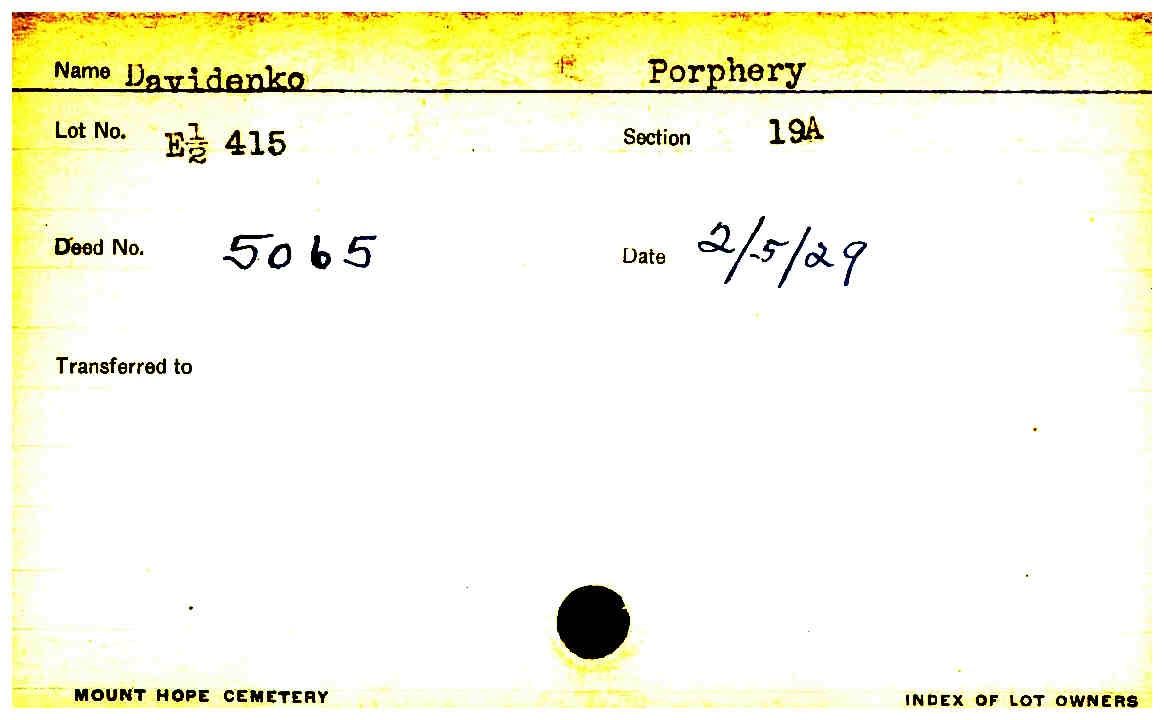 Name Davidenko Porphery
Lot No. E½ 415 Section 19A
Deed No. 5065 Date 2/5/29
Transferred to
MOUNT HOPE CEMETERY INDEX OF LOT OWNERS